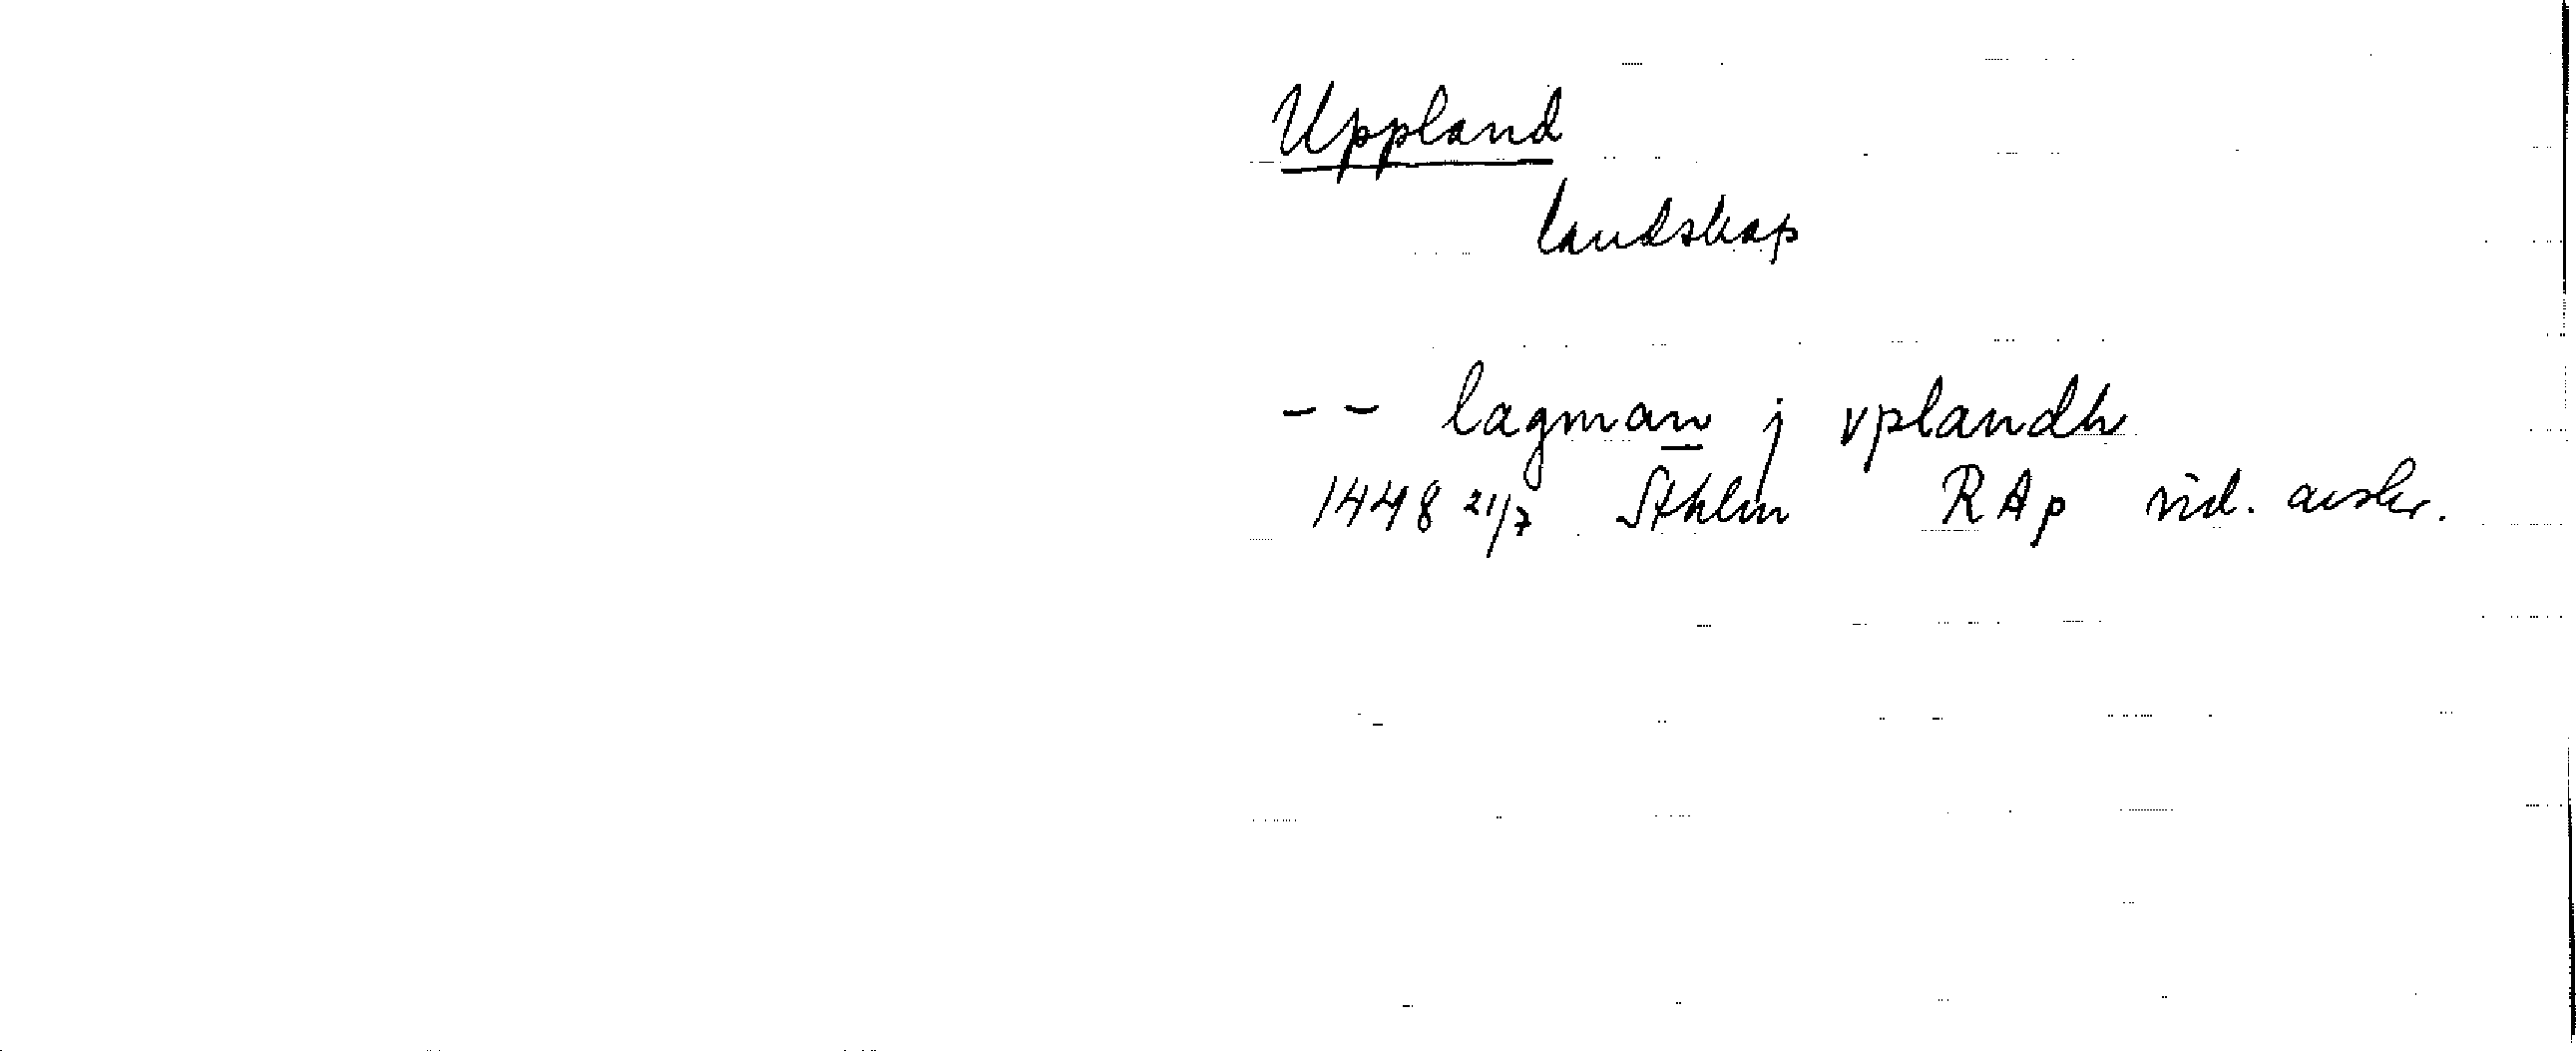 Uppland
landskap
-- lagman j vplandh
1448 21/7 Sthlm RAp vid. avskr.